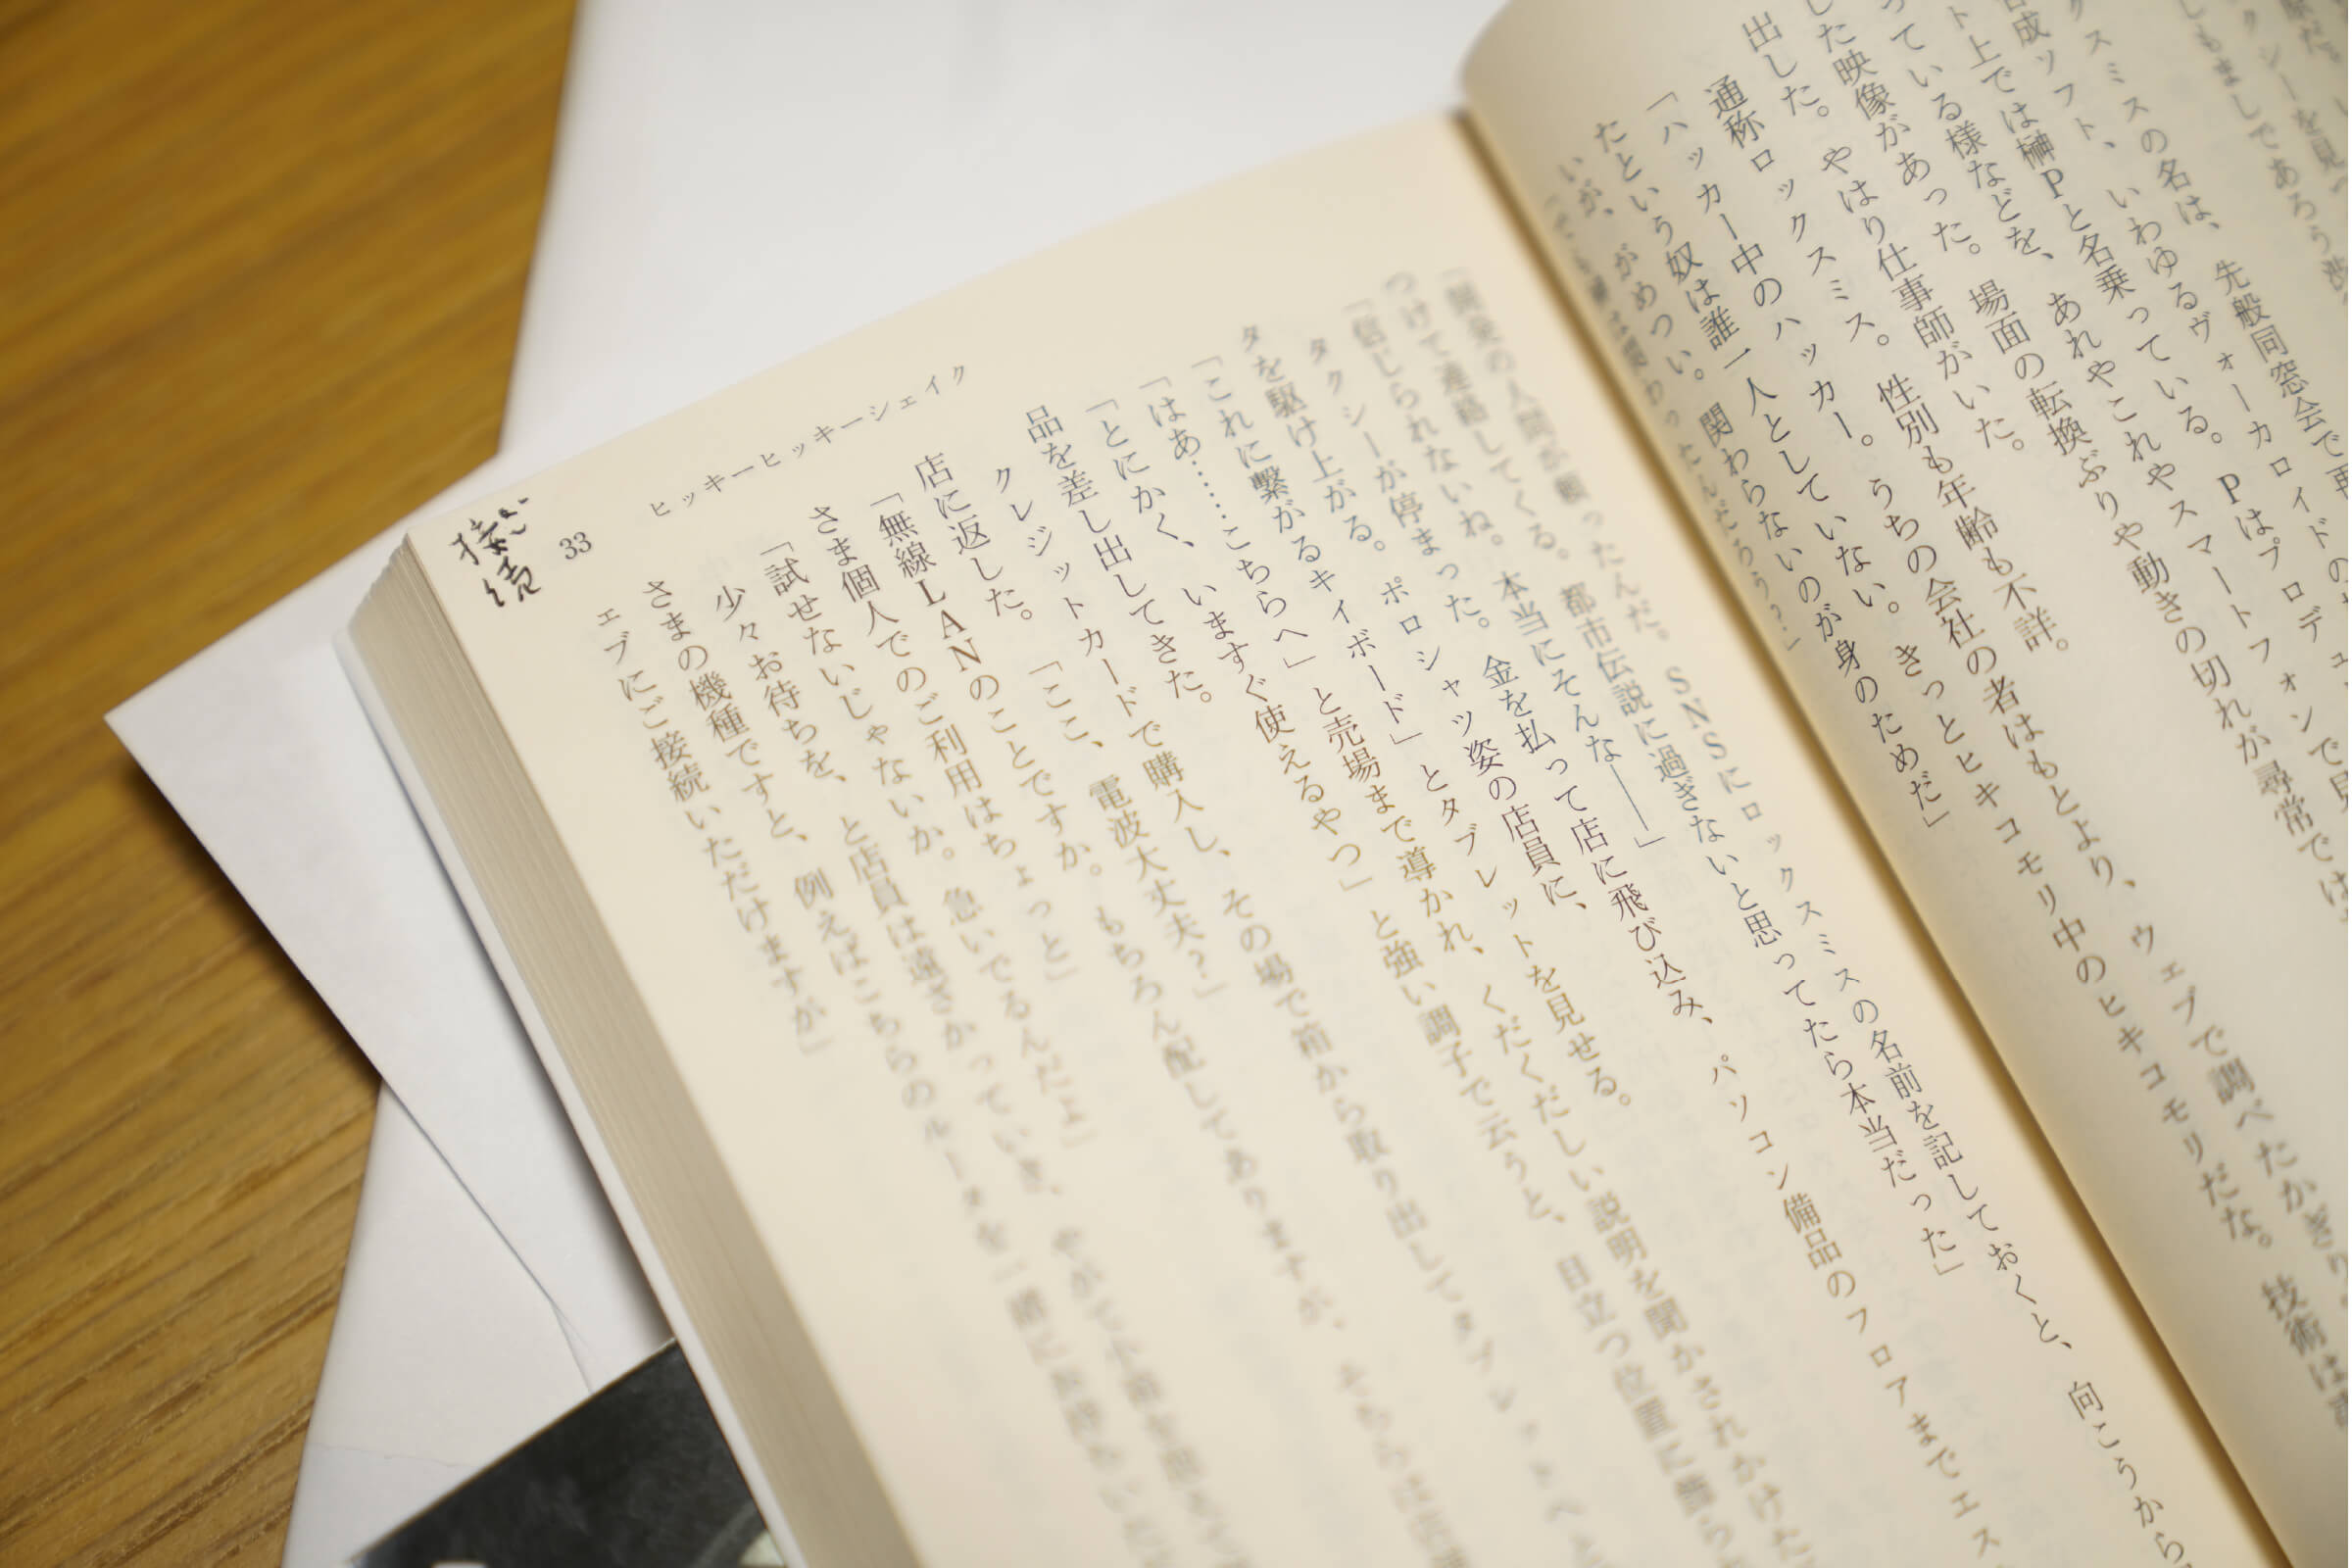 しもましであろう渋
クスミスの名は、先般同窓会で再
成ソフト、いわゆるヴォーカロイドの
ト上では榊Pと名乗っている。Pはプロデュ
っている様などを、あれやこれやスマートフォンで見
した映像があった。場面の転換ぶりや動きの切れが尋常では
出した。やはり仕事師がいた。
通称ロックスミス。性別も年齢も不詳。
「ハッカー中のハッカー。うちの会社の者はもとより、ウェブで調べたかぎり
たという奴は誰一人としていない。きっとヒキコモリ中のヒキコモリだな。技術は
いが、がめつい。関わらないのが身のためだ」
「開発の人間が頼ったんだ。SNSにロックスミスの名前を記しておくと、向こうから
つけて連絡してくる。都市伝説に過ぎないと思ってたら本当だった」
「信じられないね。本当にそんな――」
タクシーが停まった。金を払って店に飛び込み、パソコン備品のフロアまでエス
タを駆け上がる。ポロシャツ姿の店員に、
「これに繋がるキィボード」とタブレットを見せる。
「はあ……こちらへ」と売場まで導かれ、くだくだしい説明を聞かされかけた
「とにかく、いますぐ使えるやつ」と強い調子で云うと、目立つ位置に飾ら
品を差し出してきた。
クレジットカードで購入し、その場で箱から取り出してタブレットへ
店に返した。「ここ、電波大丈夫?」
「無線LANのことですか。もちろん配してありますが、そちらは
さま個人でのご利用はちょっと」
「試せないじゃないか。急いでるんだよ」
少々お待ちを、と店員は遠ざかっていき、
さまの機種ですと、例えばこちらのルータを
ェブにご接続いただけますが」
ヒッキーヒッキーシェイク
33
接続